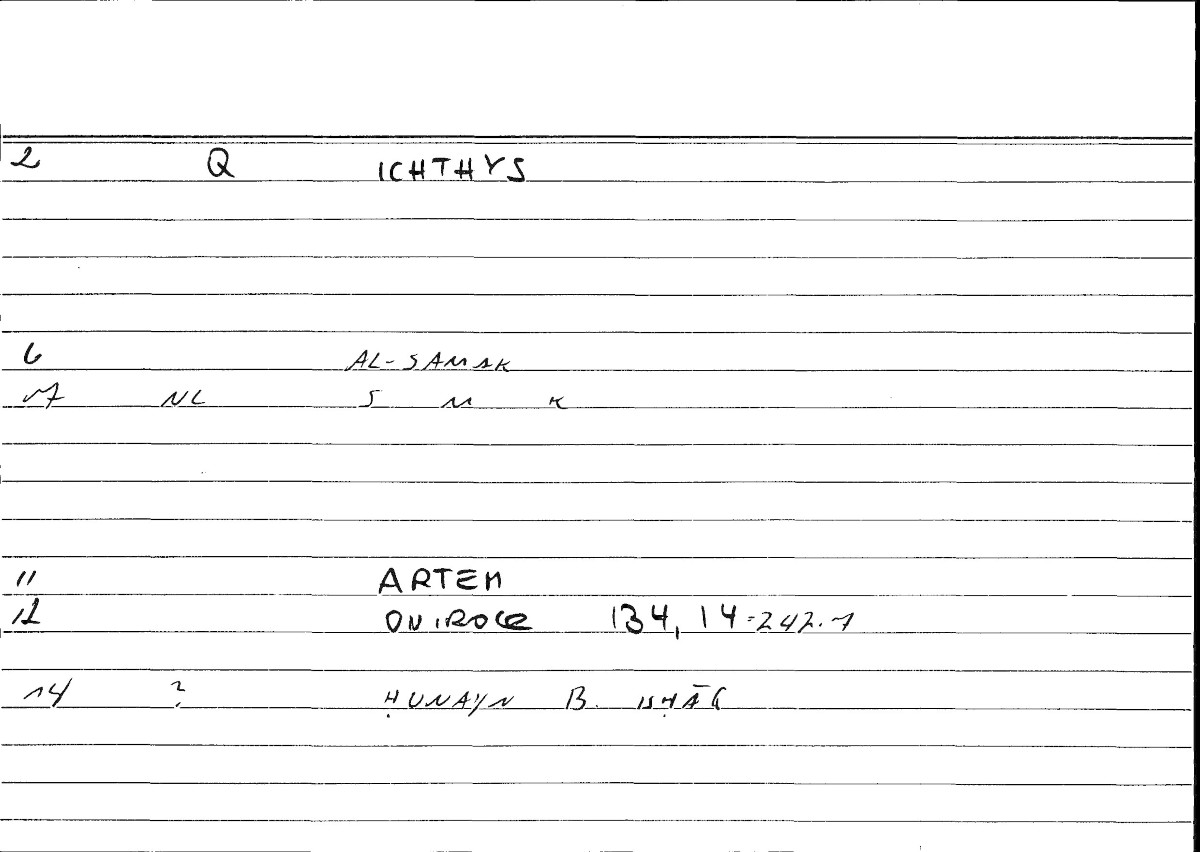 2 Q ICHTHYS
6 AL-SAMAK
7 NL S M K
11 ARTEM
12 ONIROCR 134, 14 = 242.7
14 ? ḤUNAYN B. ISḤĀQ